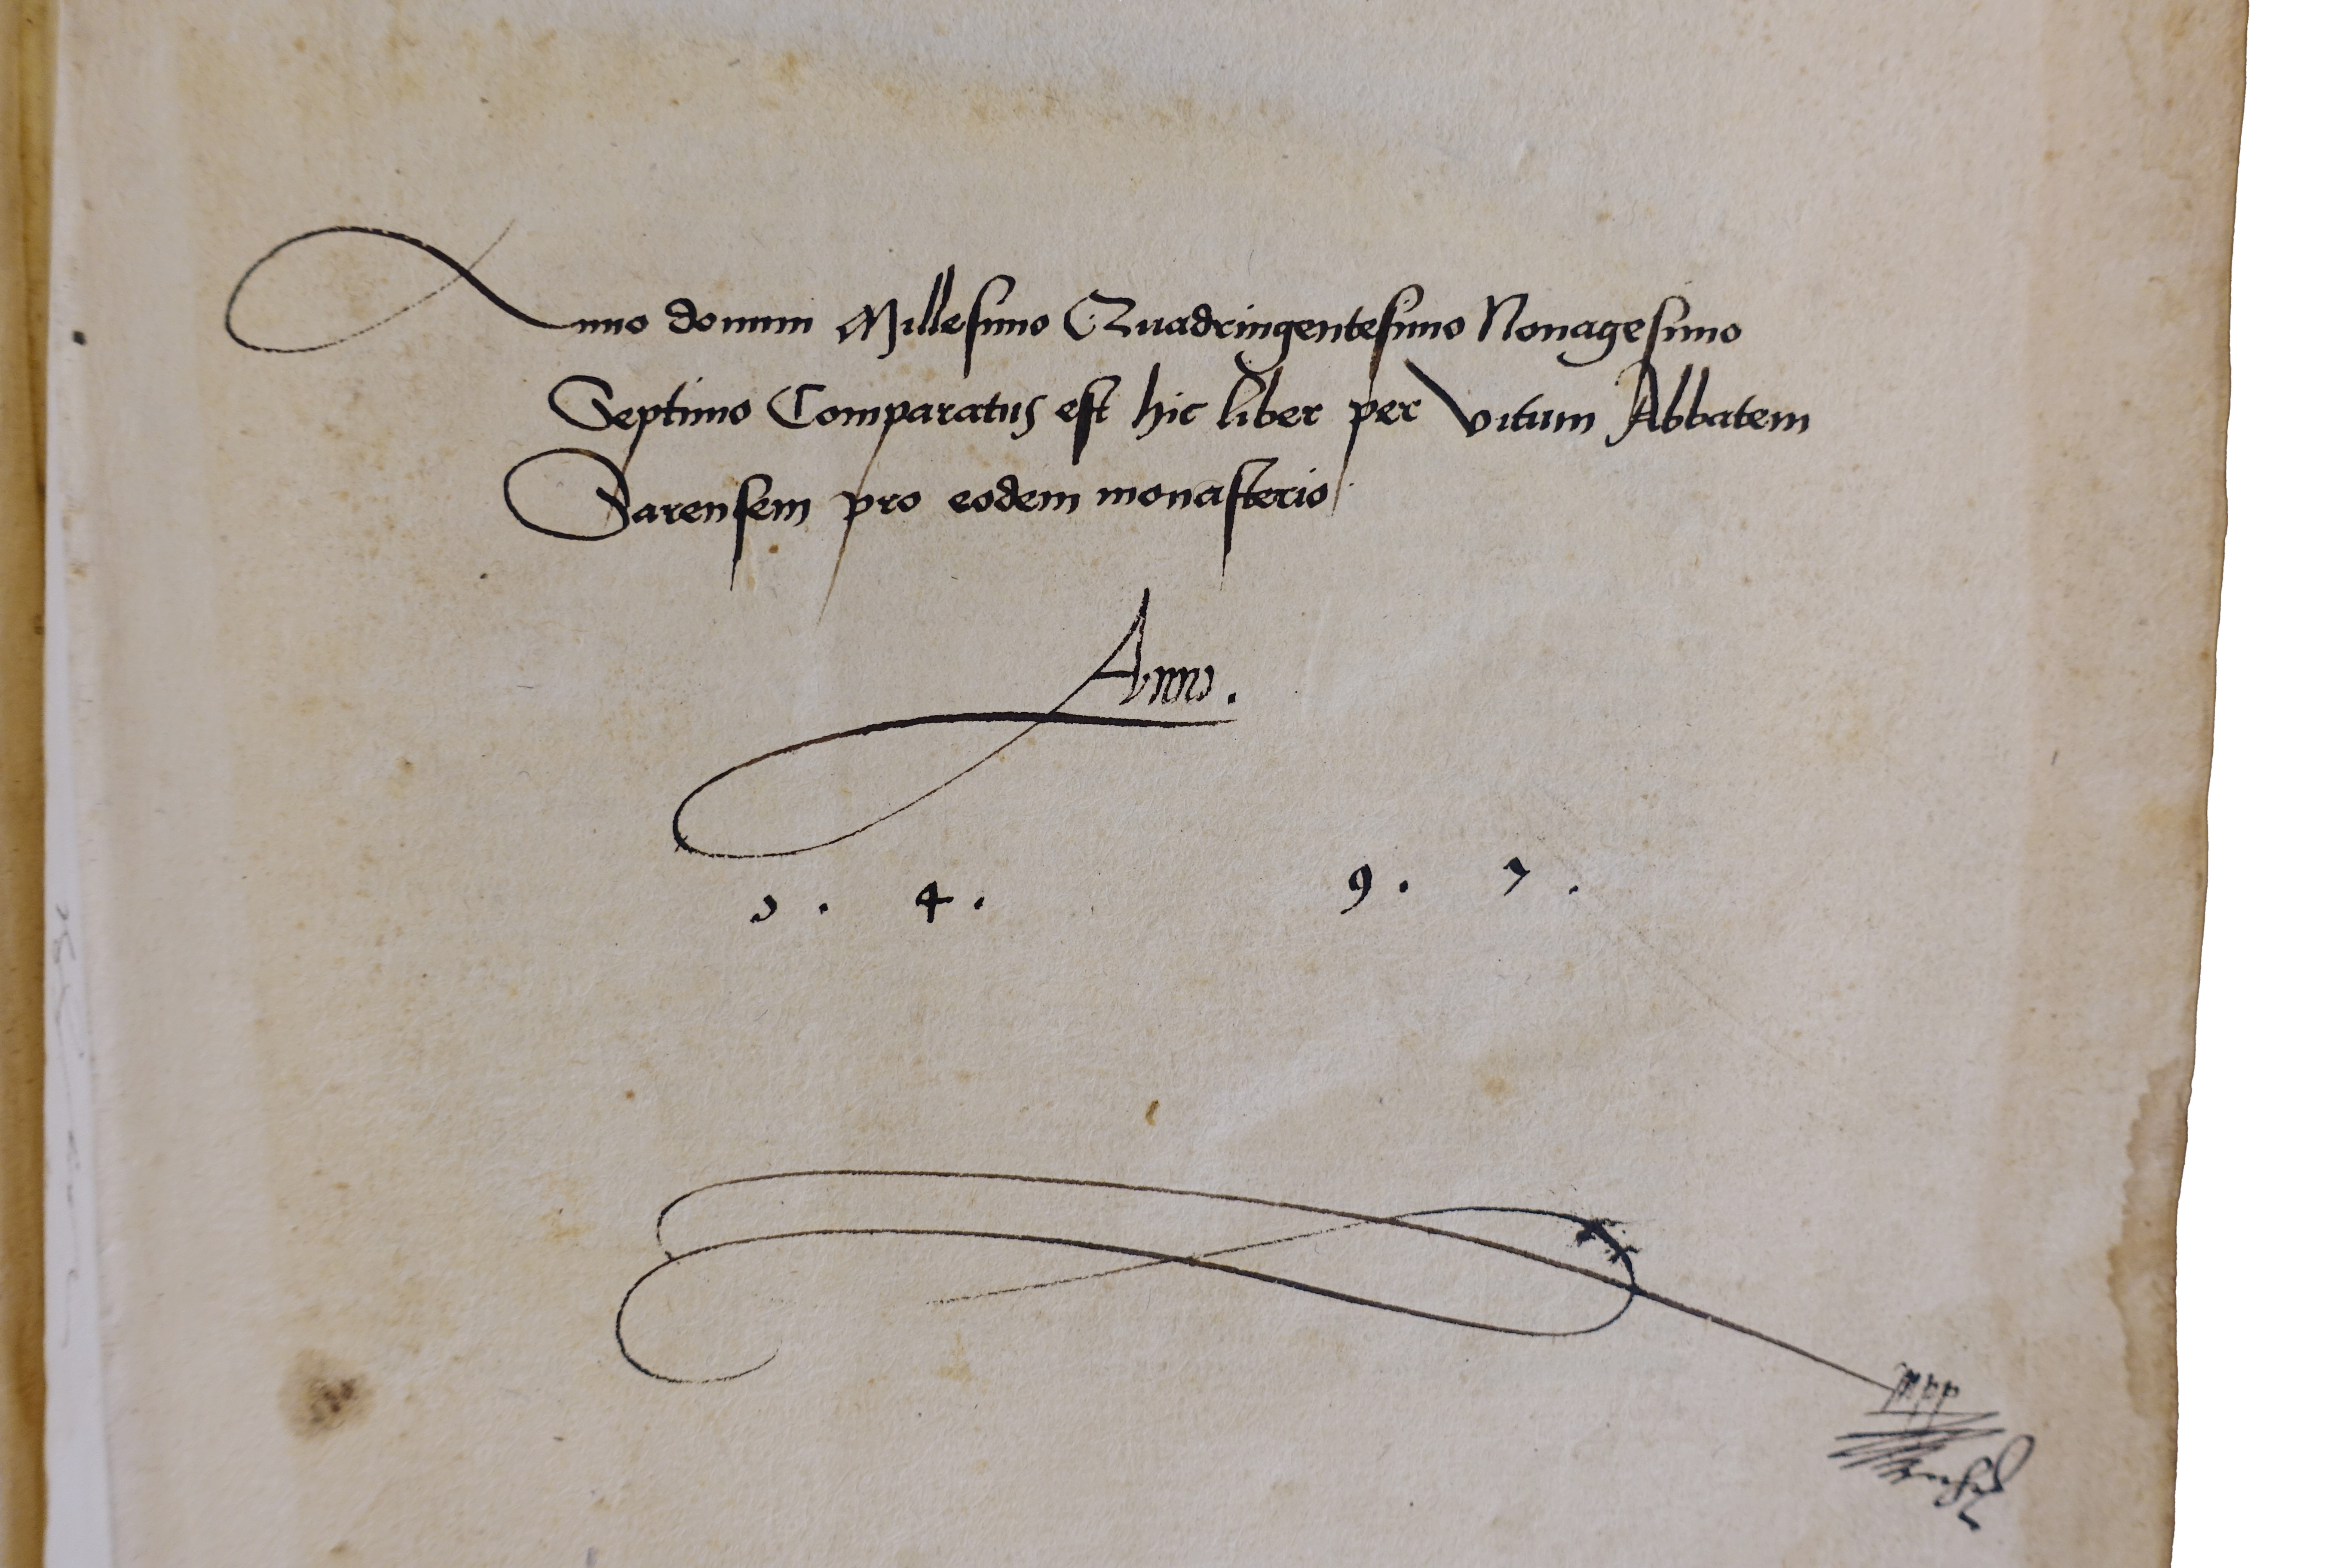 Anno domini Millesimo Quadringentesimo Nonagesimo
Septimo Comparatus est hic liber per Vitum Abbatem
Zarensem pro eodem monasterio
Anno.
1. 4. 9. 7.
mpp